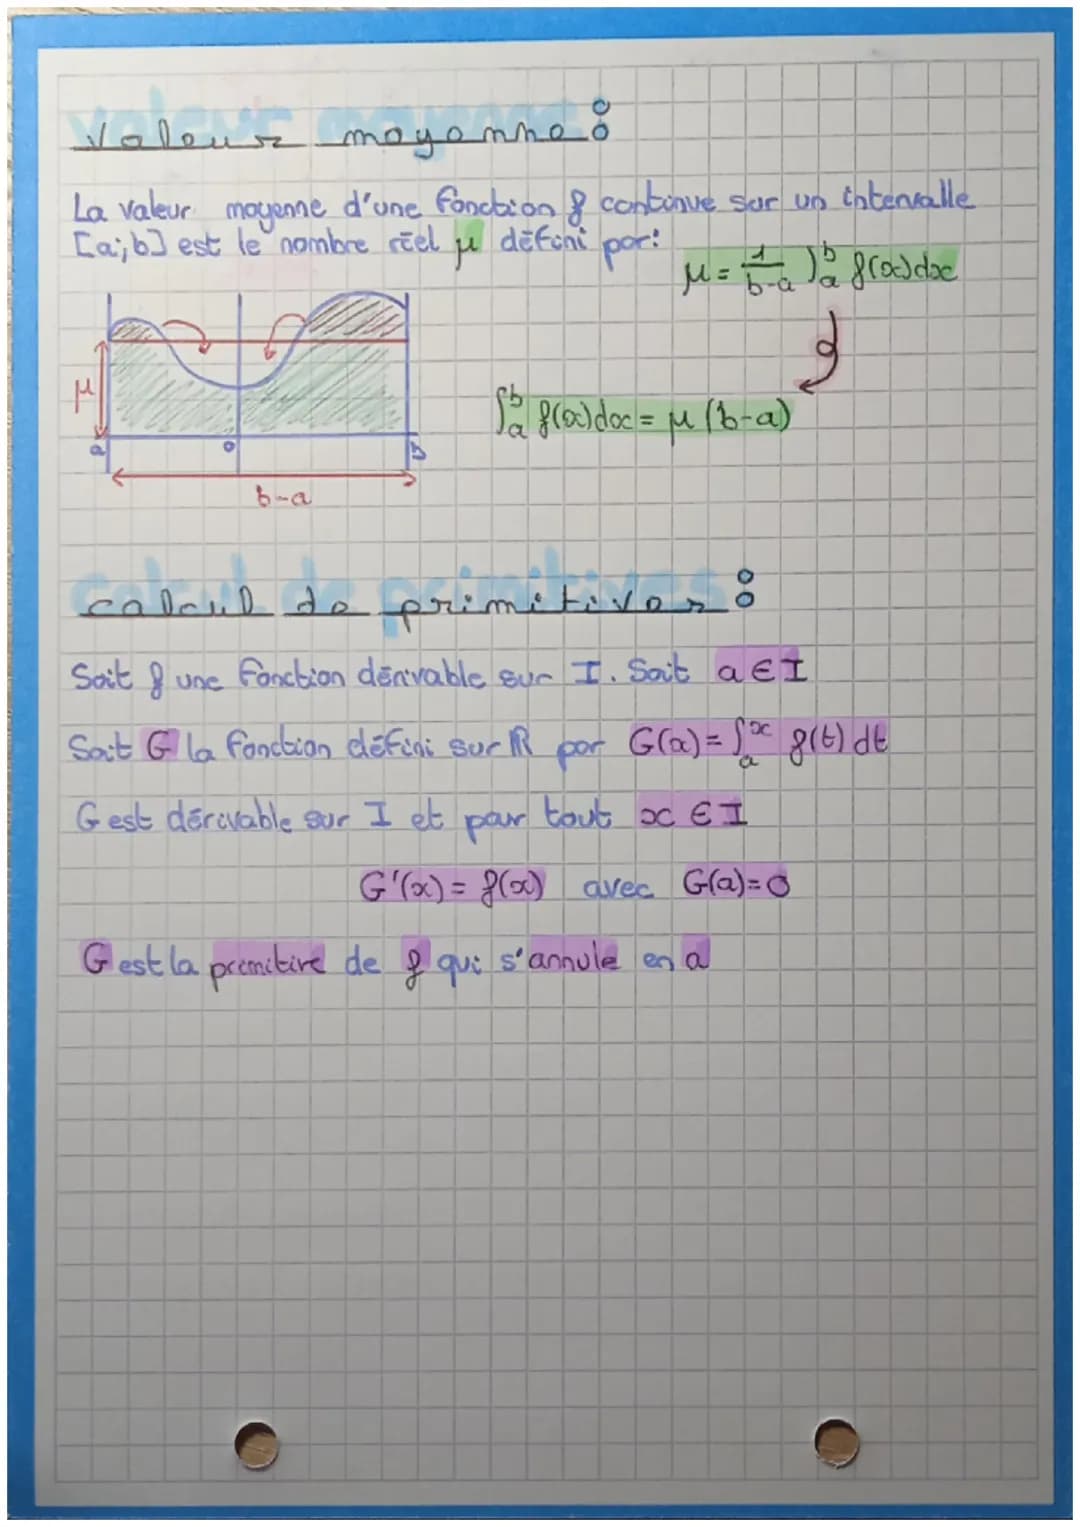 valeur moyenne :
La valeur moyenne d'une fonction f continue sur un intervalle
[a;b] est le nombre réel μ défini par:
μ = 1/(b-a) ∫ₐᵇ f(x)dx
μ
∫ₐᵇ f(x)dx = μ (b-a)
a o b
b-a
calcul de primitives :
Soit f une fonction dérivable sur I. Soit a ∈ I
Soit G la fonction défini sur ℝ par G(x) = ∫ₐˣ f(t) dt
G est dérivable sur I et par tout x ∈ I
G'(x) = f(x) avec G(a)=0
G est la primitive de f qui s'annule en a